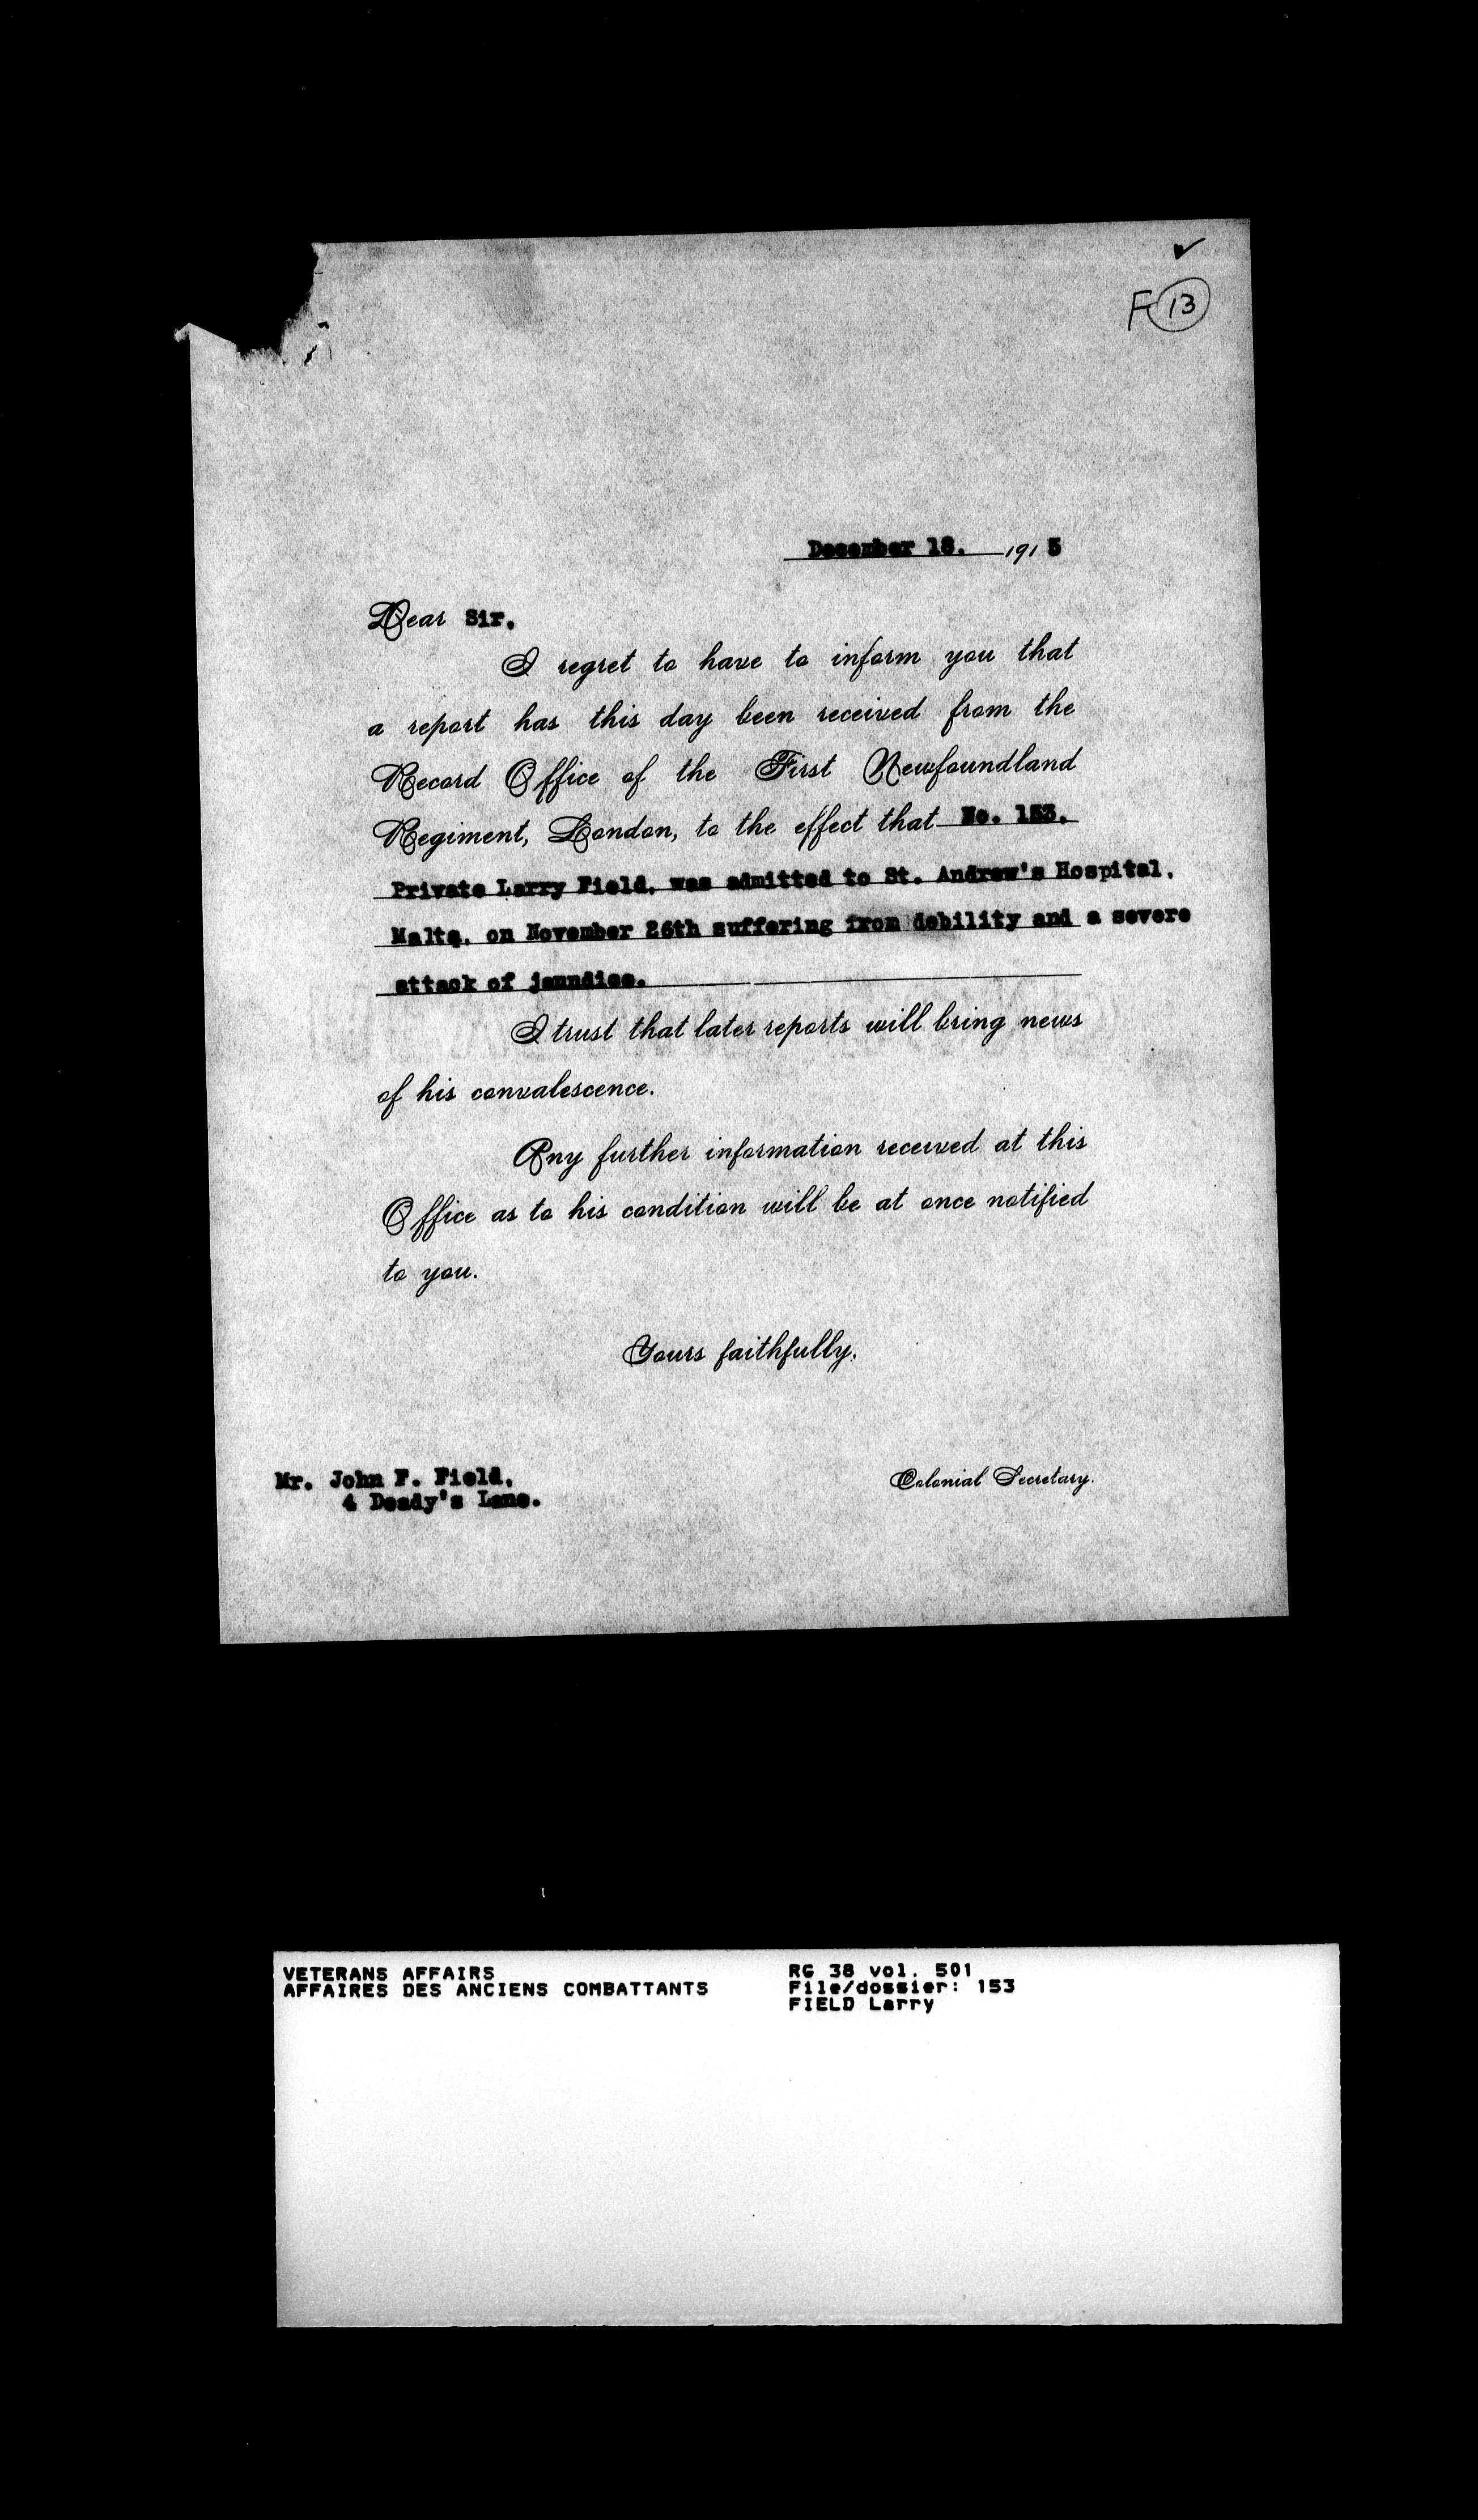 ✓
F 13
December 18, 1915
Dear Sir,
I regret to have to inform you that
a report has this day been received from the
Record Office of the First Newfoundland
Regiment, London, to the effect that No. 153,
Private Larry Field, was admitted to St. Andrew's Hospital,
Malta, on November 26th suffering from debility and a severe
attack of jaundice.
I trust that later reports will bring news
of his convalescence.
Any further information received at this
Office as to his condition will be at once notified
to you.
Yours faithfully,
Colonial Secretary.
Mr. John F. Field,
4 Deady's Lane.
VETERANS AFFAIRS
AFFAIRES DES ANCIENS COMBATTANTS
RG 38 vol. 501
File/dossier: 153
FIELD Larry